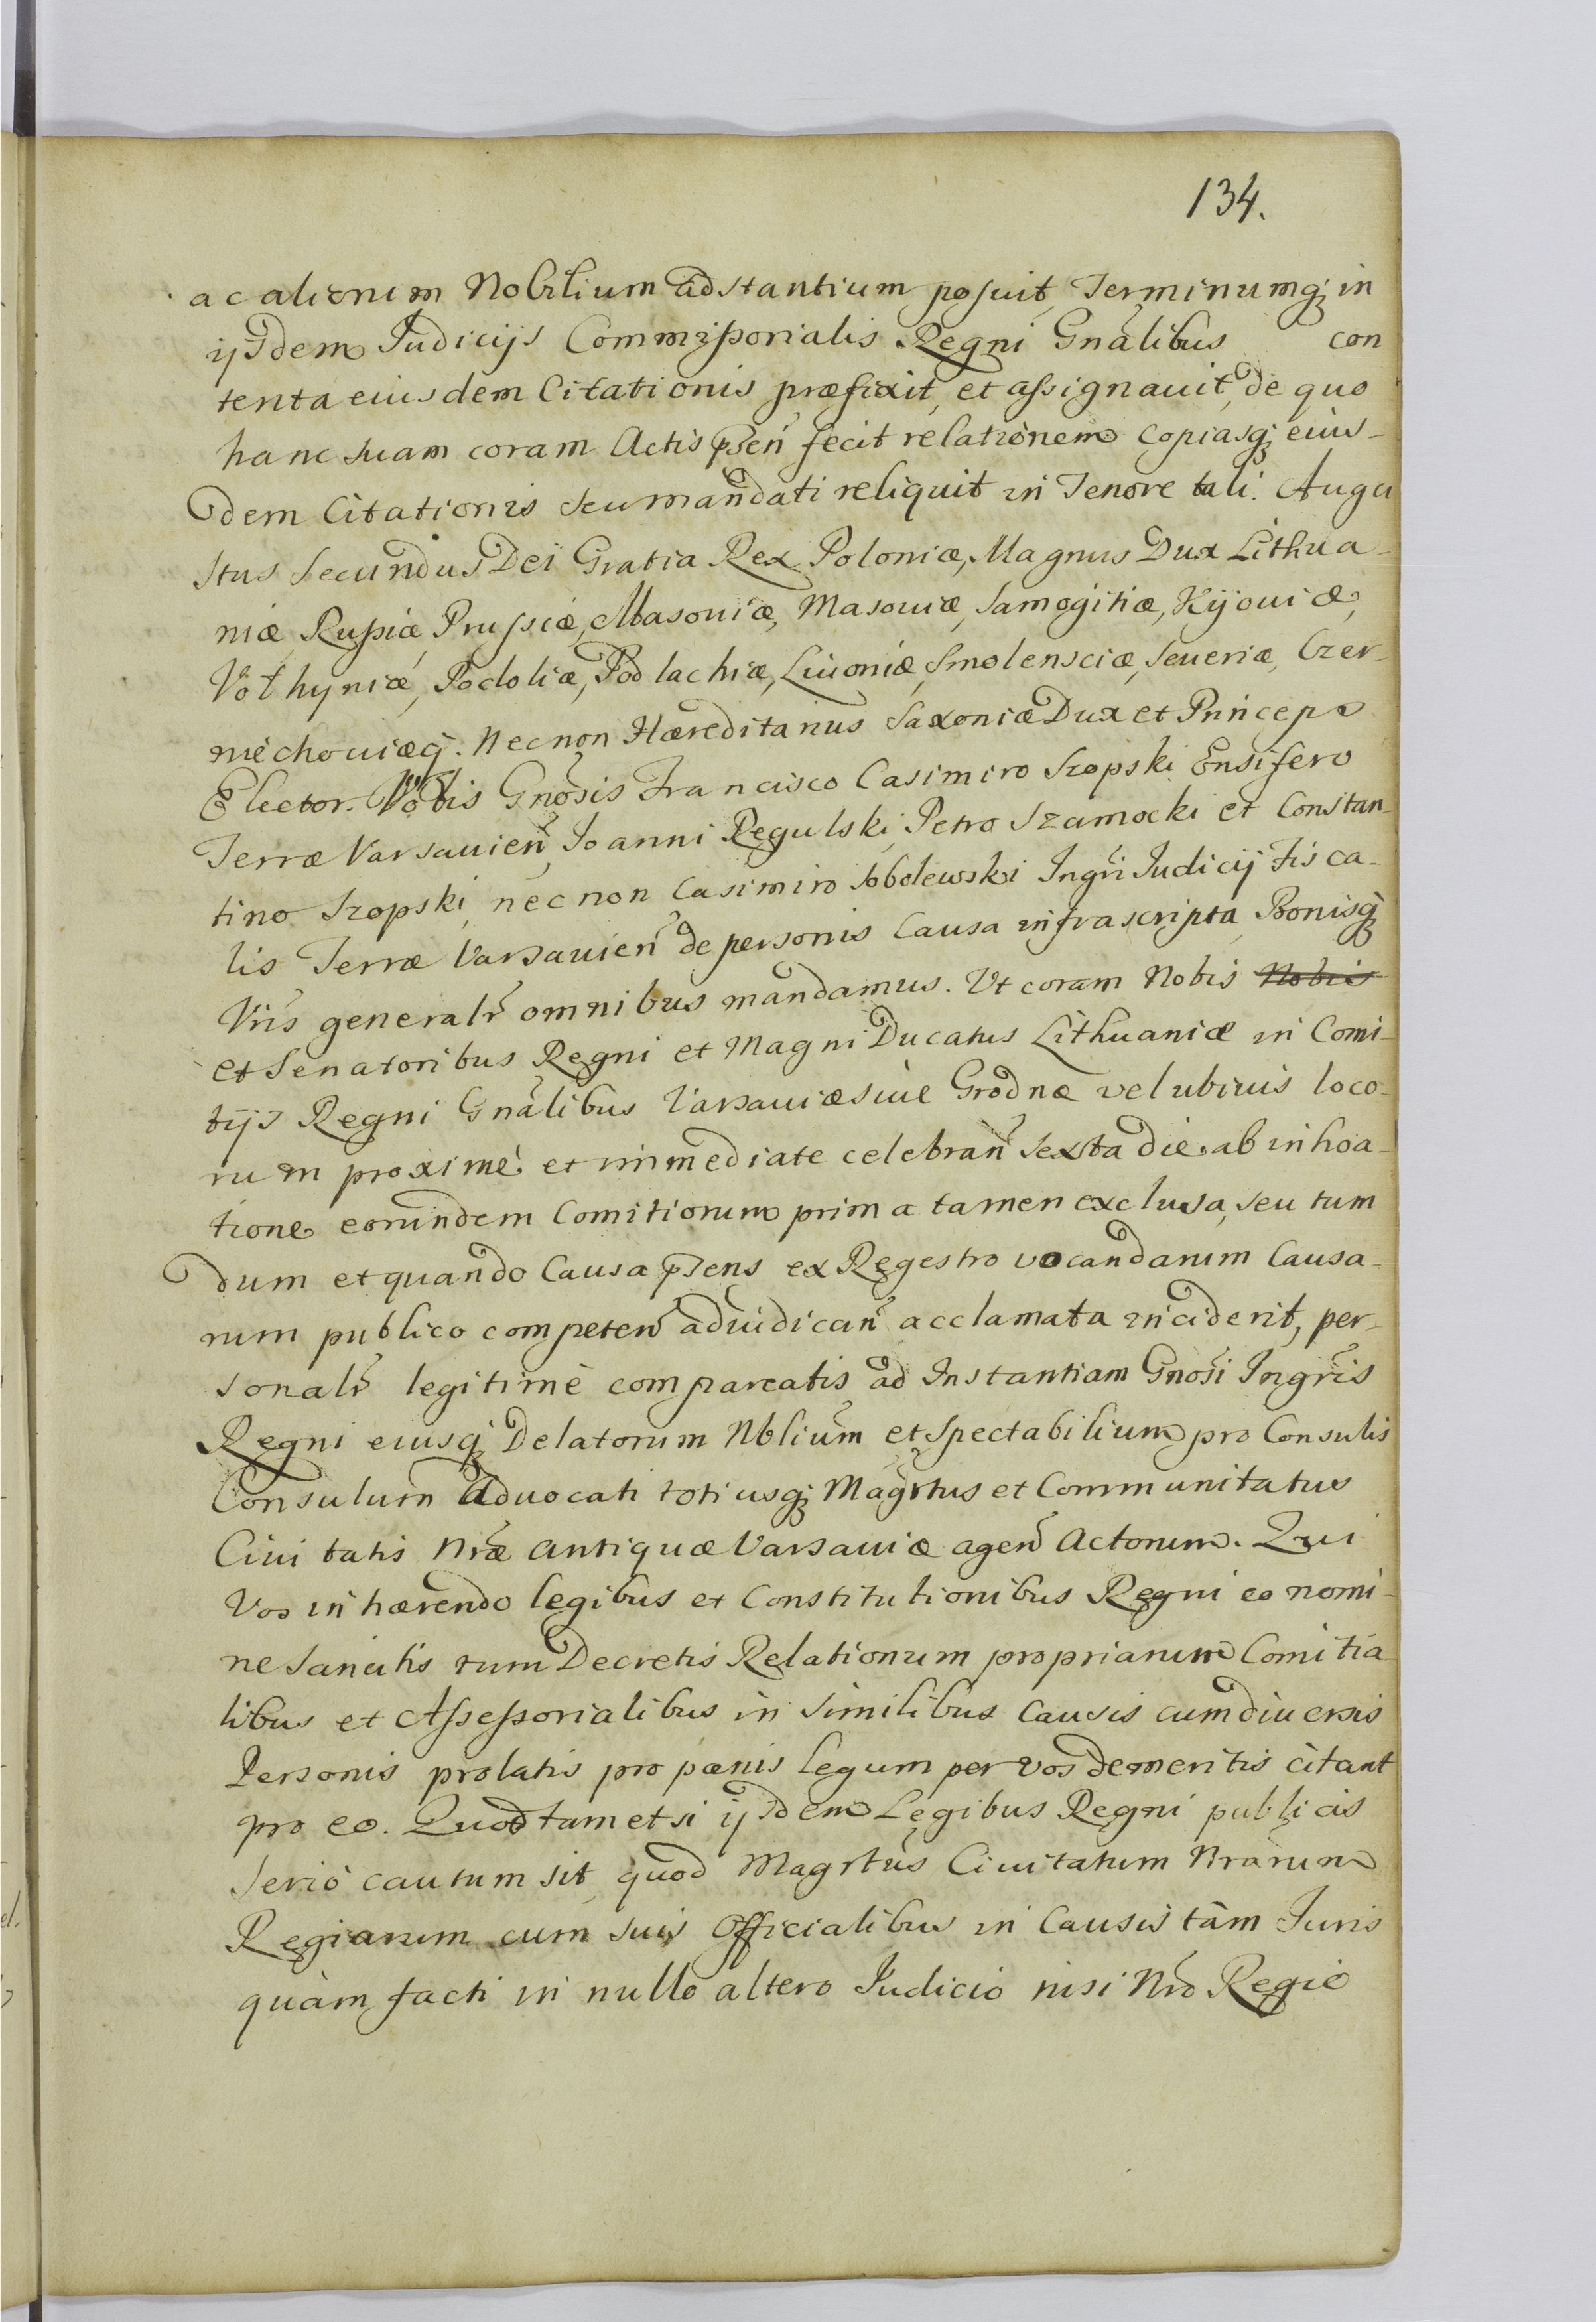 134.
ac aliorum Nobilium adstantium posuit, Terminumq; in
ijsdem Judicijs Commissorialis Regni Gnãlibus con
tenta eiusdem Citationis præfixit, et assignauit, de quo
hanc suam coram Actis p̃sen̄ fecit relationem copiasq; eius-
dem Citationis seu mandati reliquit in Tenore tali. Augu
stus Secundus Dei Gratia Rex Poloniæ, Magnus Dux Lithua-
niæ Russiæ Prussiæ, Masouiæ, Masouiæ, Samogitiæ, Kijouiæ,
Volhyniæ, Podoliæ, Podlachiæ, Liuoniæ, Smolensciæ, Seueriæ, Czer-
niéchouiæq. Necnon Hæreditarius Saxoniæ Dux et Princeps
Elector. Vobis Gnõsis Francisco Casimiro Szopski Ensifero
Terræ Varsauień, Joanni Regulski, Petro Szamocki et Constan-
tino Szopski, nec non Casimiro Sobolewski Ingri Judicij Fisca-
lis Terræ Varsauień de personis Causa infrascripta, Bonisq;
Vr̃is generalr̃ omnibus mandamus. Vt coram Nobis ~~Nobis~~
et Senatoribus Regni et Magni Ducatus Lithuaniæ in Comi-
tijs Regni Gnãlibus Varsauiæ siue Grodnæ vel ubiuis loco-
rum proximè et immediate celebrañ sexta die ab inhoa-
tione eorundem Comitiorum prima tamen exclusa, seu tum
dum et quando Causa p̃sens ex Regestro vocandarum Causa-
rum publico competeñ adiudicañ acclamata inciderit, per-
sonalr̃ legitimè compareatis ad Instantiam Gnõsi Ingr̃is
Regni eiusq; Delatorum Nbliũm et Spectabilium pro Consulis
Consulum Aduocati totiusq; Magr̃tus et Communitatus
Ciuitatis Nr̃æ Antiquæ Varsauiæ ageñ Actorum. Qui
Vos inhærendo legibus et Constitutionibus Regni eo nomi-
ne Sancitis tum Decretis Relationum propriarum Comitia
libus et Assessorialibus in similibus Causis cum diuersis
Personis prolatis pro pænis legum per vos demeritis citant
pro eo. Quod tametsi ijsdem Legibus Regni publicis
serió cautum sit, quod Magr̃tus Ciuitatum Nrarum
Regiarum cum suis Officialibus in Causis tàm Juris
quàm facti in nullo altero Judicio nisi Nr̃o Regio